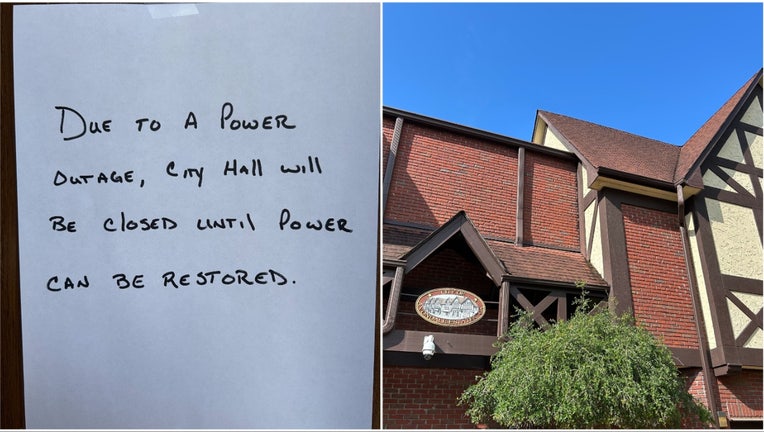 Due to a Power
Outage, City Hall will
be closed until Power
can be restored.
CITY OF